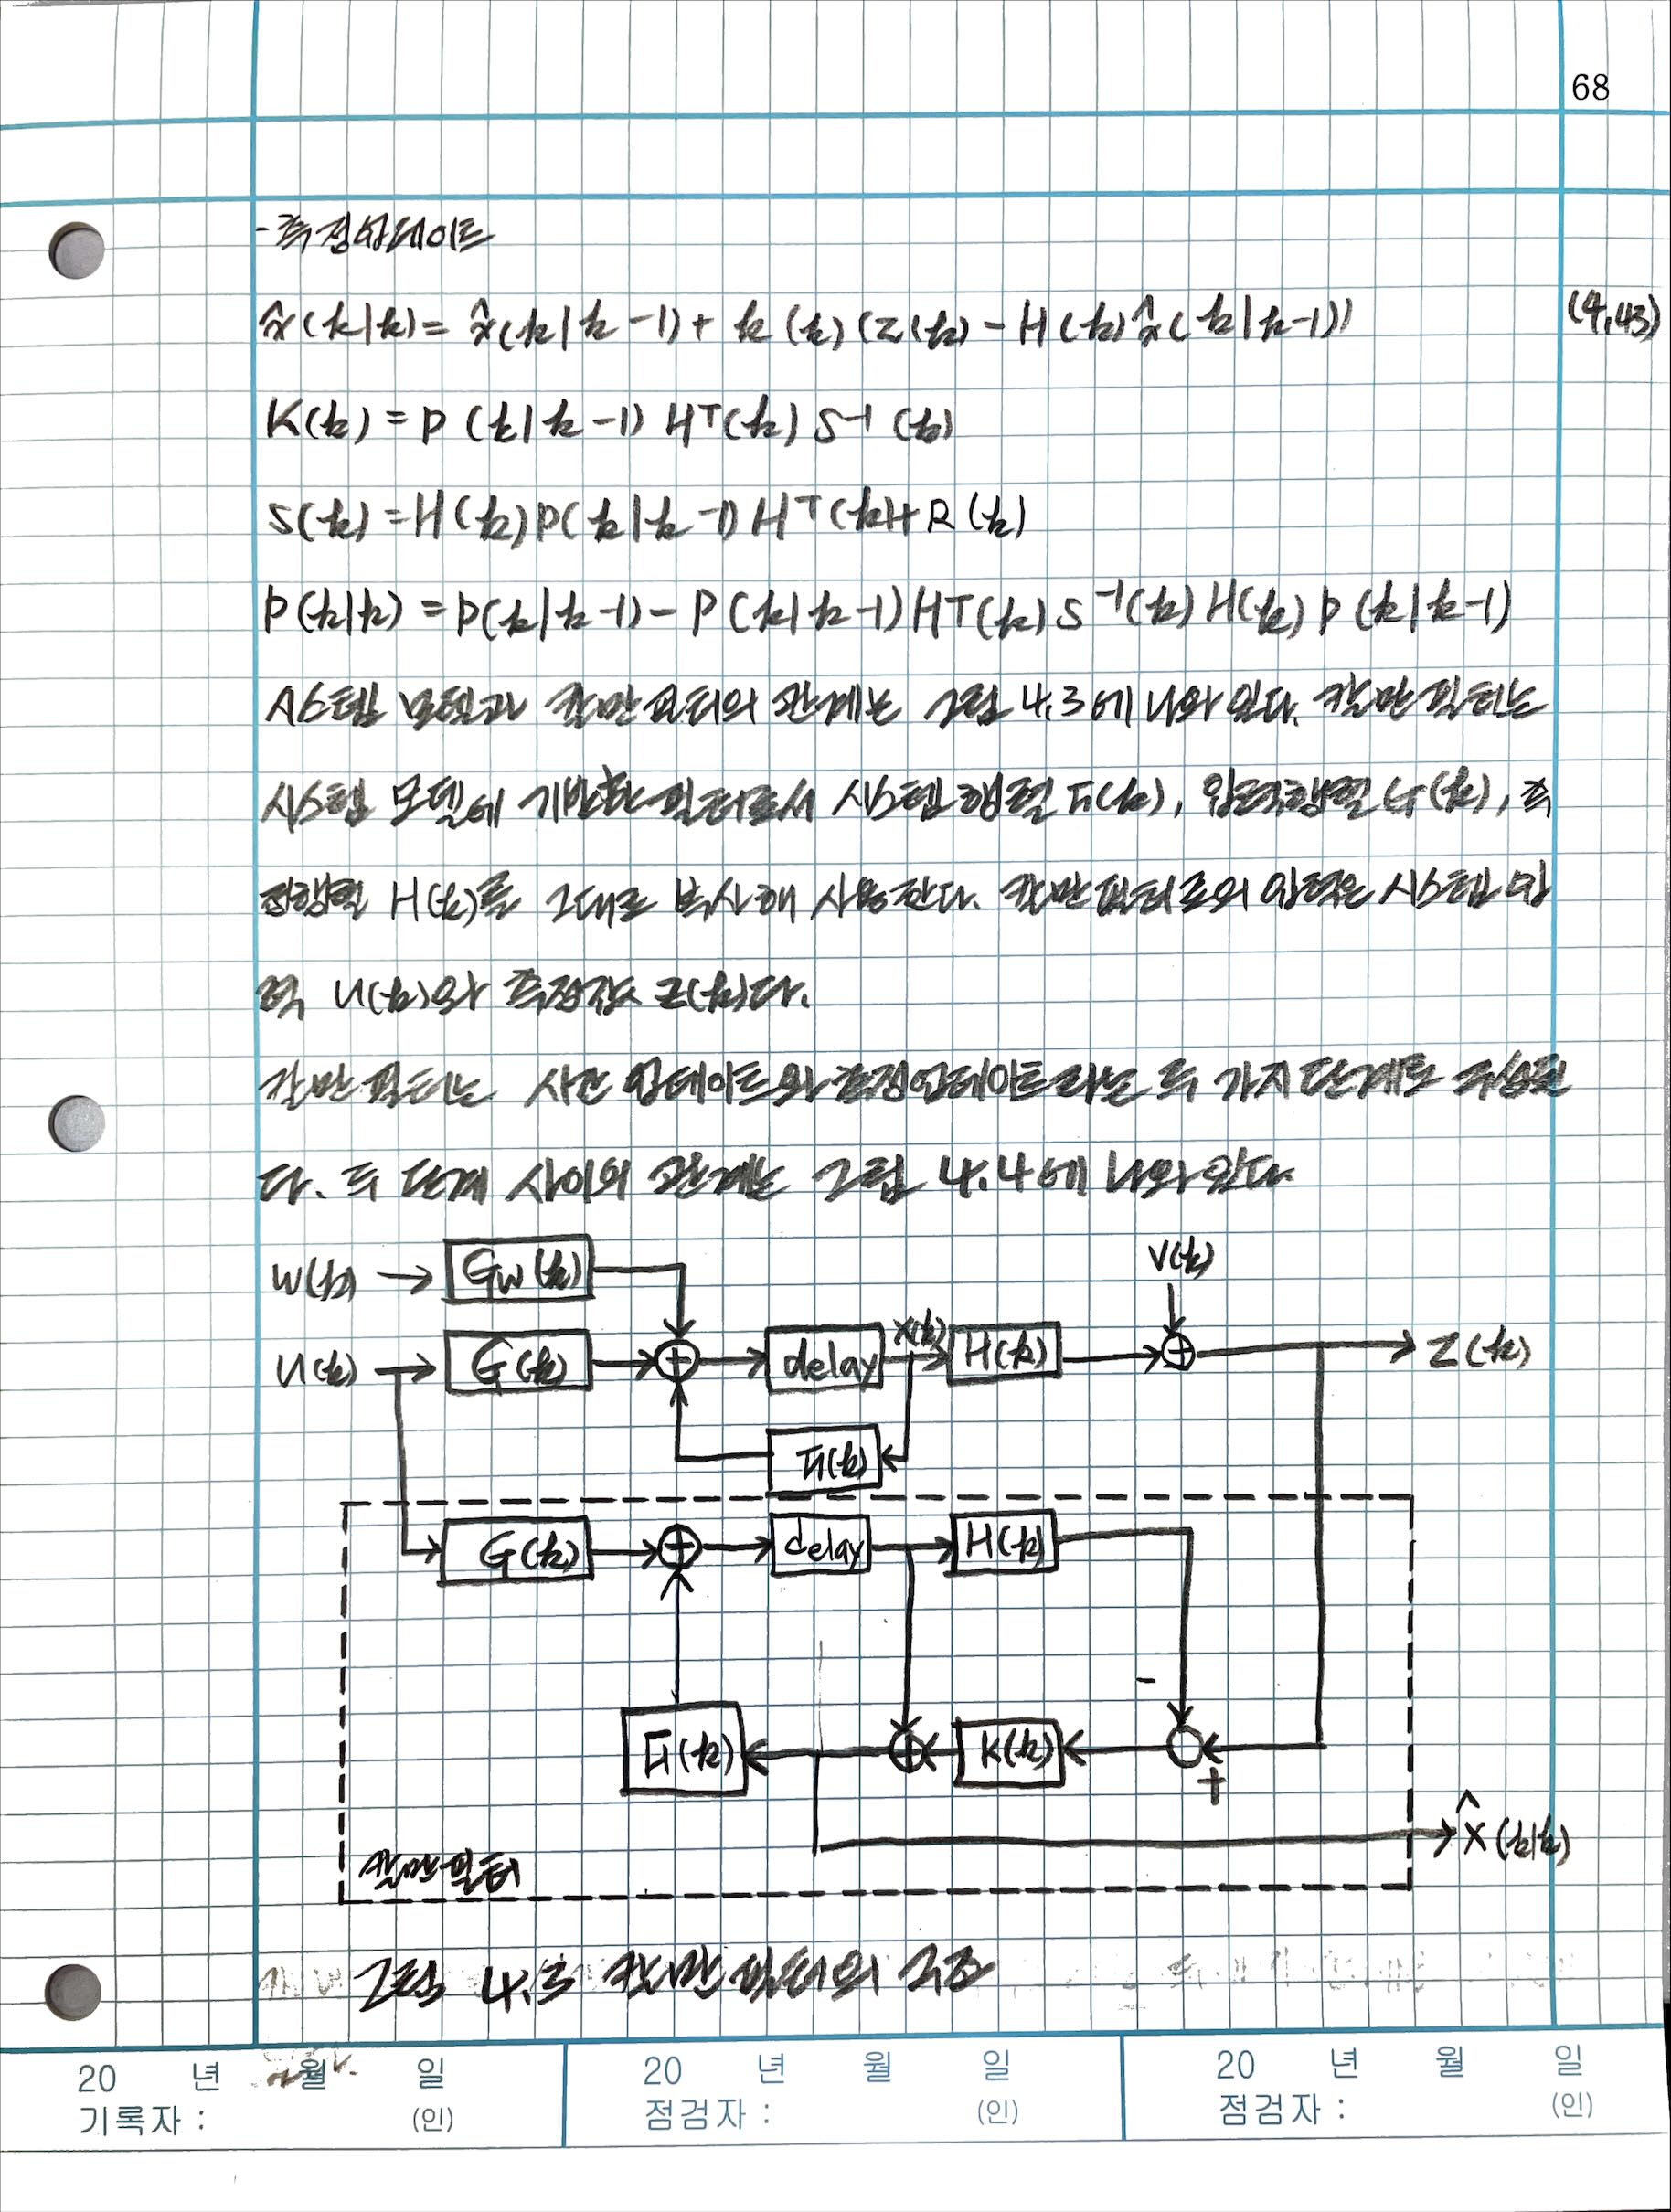 68
- 측정업데이트
x̂(k|k) = x̂(k|k-1) + k(k)(z(k) - H(k)x̂(k|k-1)) (4.43)
K(k) = P(k|k-1) Hᵀ(k) S⁻¹(k)
S(k) = H(k)P(k|k-1)Hᵀ(k)+R(k)
P(k|k) = P(k|k-1) - P(k|k-1)Hᵀ(k)S⁻¹(k)H(k)P(k|k-1)
시스템 모델과 칼만필터의 관계는 그림 4.3에 나와 있다. 칼만 필터는
시스템 모델에 기반한 필터로서 시스템 행렬 F(k), 입력행렬 G(k), 측
정행렬 H(k)를 그대로 복사해 사용한다. 칼만필터로의 입력은 시스템 입
력 u(k)와 측정값 z(k)다.
칼만 필터는 시간 업데이트와 측정업데이트라는 두 가지 단계로 구성된
다. 두 단계 사이의 관계는 그림 4.4에 나와 있다.
w(k) Gw(k) v(k)
u(k) G(k) + delay x(k) H(k) + z(k)
F(k)
G(k) + delay H(k)
-
F(k) + K(k) +
x̂(k|k)
칼만필터
그림 4.3 칼만 필터의 구조
20 년 월 일 20 년 월 일 20 년 월 일
기록자 : (인) 점검자 : (인) 점검자 : (인)